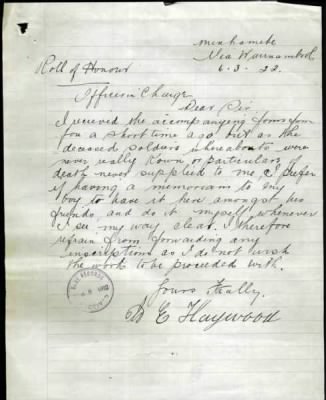 Minhamete
Via Warrnambool
6.3.22.
Roll of Honour
Officer in Charge
Dear Sir
I received the accompanying forms from
you a short time ago but as the
deceased soldiers whereabouts were
never really known or particulars of
death never supplied to me I prefer
if having a memoriam to my
boy to have it here amongst his
friends, and do it myself whenever
I see my way clear. I therefore
refrain from forwarding any
inscription as I do not wish
the work to be proceeded with.
Yours Fcally.
E Haywood